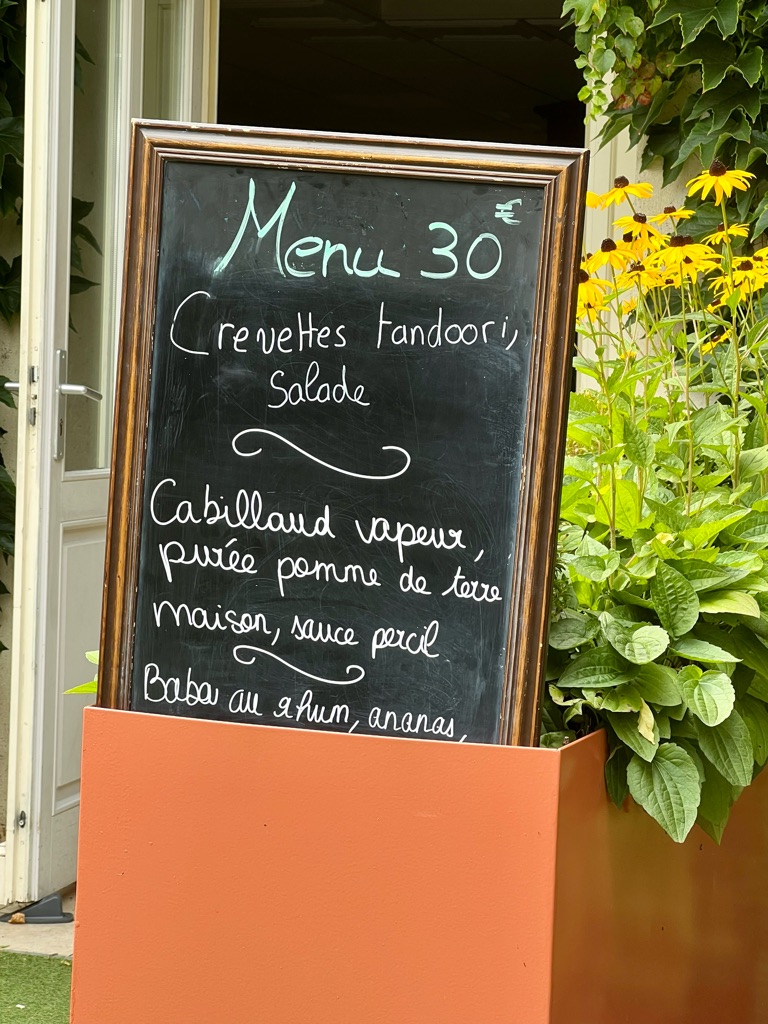 Menu 30 €
Crevettes tandoori,
Salade
Cabillaud vapeur,
purée pomme de terre
maison, sauce percil
Baba au rhum, ananas,